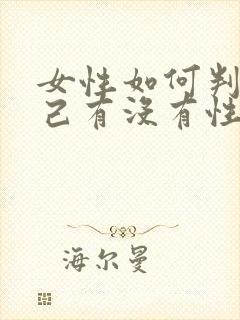 女性如何判
己有没有性
海尔曼